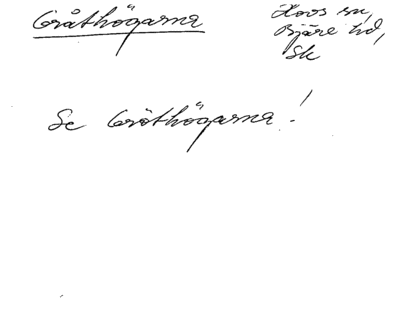 Gråthögarna
Hovs sn,
Bjäre hd,
Sk
Se Gröthögarna!